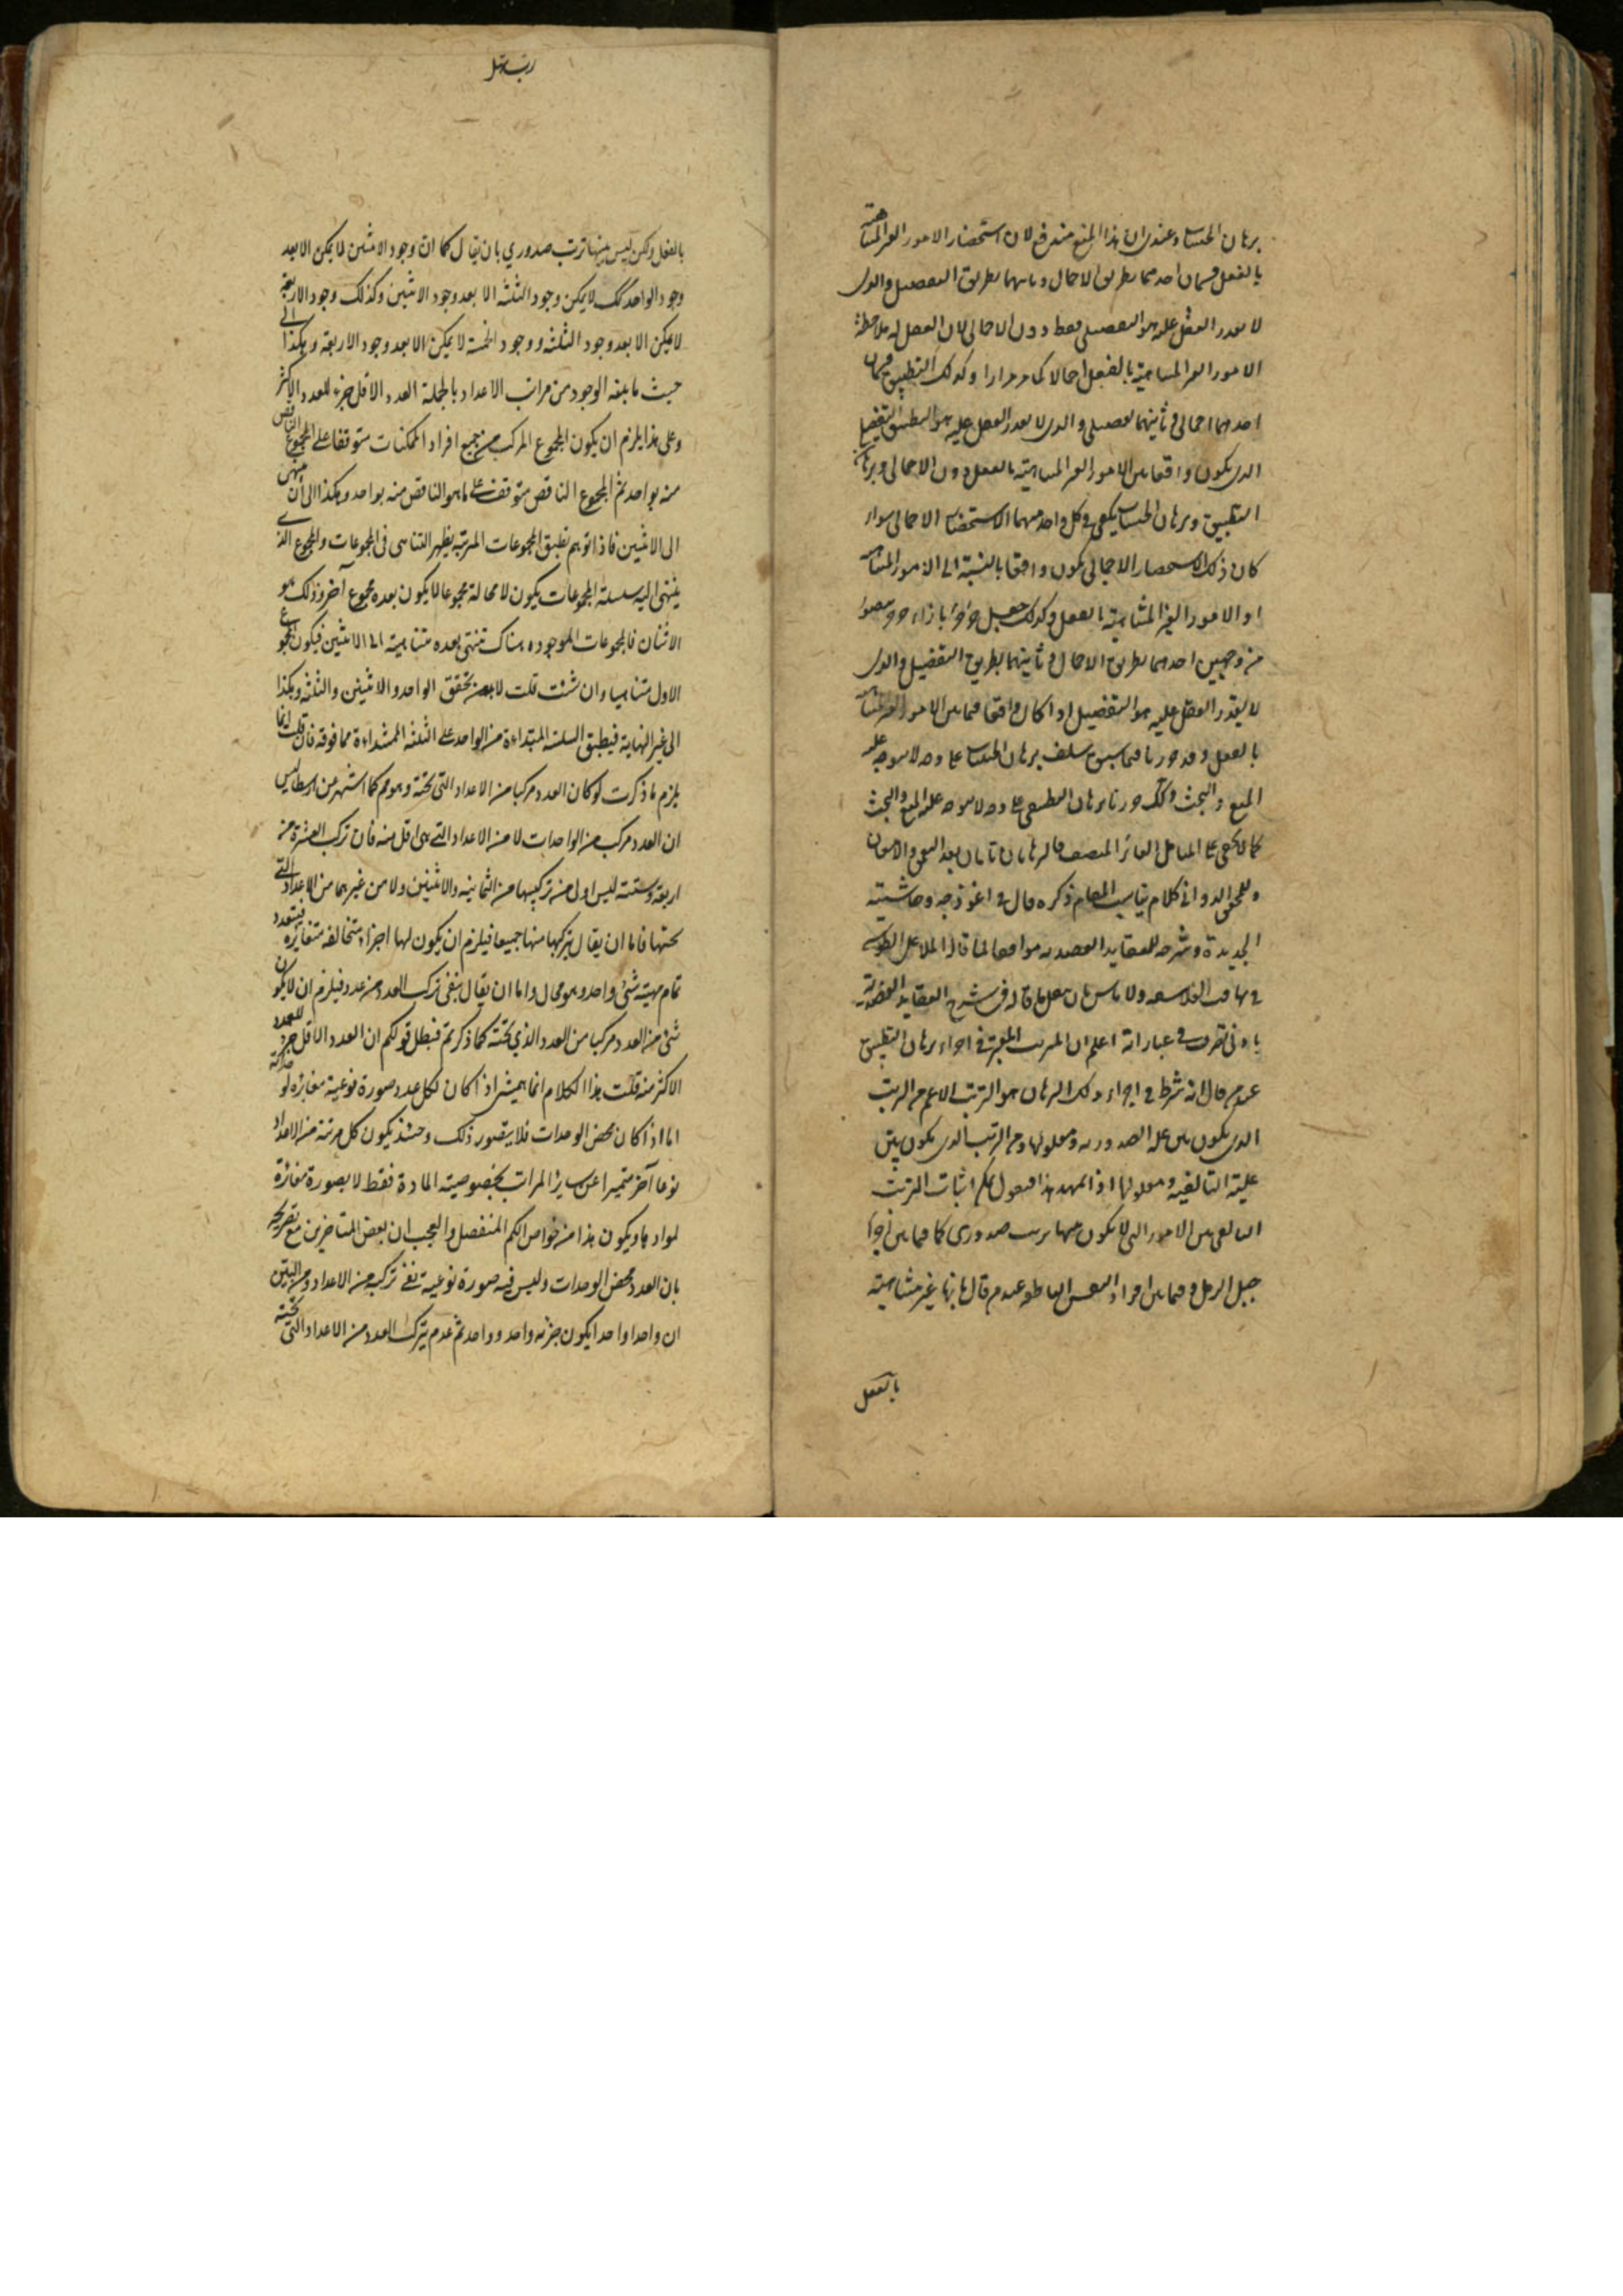 برهان الحيثيات وعندى ان هذا المنع مندفع لان استحضار الامور الغير المتناهية
بالفعل قسمان احدهما بطريق الاجمال وثانيهما بطريق التفصيل والذى
لا يقدر العقل عليه هو التفصيلى فقط دون الاجمالى لان العقل له ملاحظة
الامور الغير المتناهية بالفعل اجمالا كما مر مرارا وكذلك التطبيق قسمان
احدهما اجمالى وثانيهما تفصيلى والذى لا يقدر العقل عليه هو التطبيق التفصيلى
الذى يكون واقعا بين الامور الغير المتناهية بالفعل دون الاجمالى وبرهان
التطبيق وبرهان الحيثيات يكفى فى كل واحد منهما الاستحضار الاجمالى سواء
كان ذلك الاستحضار الاجمالى يكون واقعا بالنسبة الى الامور المتناهية
او الامور الغير المتناهية بالفعل وكذلك جعل جزء بازاء جزء
من وجهين احدهما بطريق الاجمال وثانيهما بطريق التفصيل والذى
لا يقدر العقل عليه هو التفصيل اذا كان واقعا فيما بين الامور الغير المتناهية
بالفعل وقد جوزنا فيما سبق سلف برهان الحيثيات على وجه لا يتوجه عليه
المنع والبحث وكذلك حررنا برهان التطبيق على وجه لا يتوجه عليه المنع والبحث
كما لا يخفى على المتامل المنصف فالبرهانان تامان بعد
وللمحقق الدوانى كلام يناسب المقام ذكره قال فى انموذجه وحاشيته
الجديدة وشرحه للعقايد العضديه موافقا لما قال الملا على الطوسى
فى تهافت الفلاسفه ولا باس بان نعمل ما قاله فى شرح العقايد العضديه
بادنى تصرف فى عباراته اعلم ان الترتيب المعتبر فى اجراء برهان التطبيق
عند من قال انه شرط فى اجراء ذلك البرهان هو الترتب الاعم من الترتب
الذى يكون بين علة الصدوريه ومعلولها ومن الترتب الذى يكون بين
علية التاليفيه ومعلولها اذا تمهد هذا فنقول يمكن اثبات الترتب
التاليفى بين الامور التى لا يكون بينها ترتب صدورى كما فيما بين اجزاء
جبل الرمل وفيما بين افراد النفس الناطقه عند من قال بانها غير متناهية
بالفعل
بالفعل ولكن ليس بينها ترتب صدوري بان يقال كما ان وجود الاثنين لا يمكن الا بعد
وجود الواحد كك لا يمكن وجود الثلثة الا بعد وجود الاثنين وكذلك وجود الاربعة
لا يمكن الا بعد وجود الثلثة ووجود الخمسة لا يمكن الا بعد وجود الاربعة وهكذا الى
حيث ما بلغه الوجود من مراتب الاعداد بالجملة العدد الاقل جزء للعدد الاكثر
وعلى هذا يلزم ان يكون المجموع المركب من جميع افراد الممكنات متوقفا على المجموع الناقص
منه بواحد ثم المجموع الناقص متوقف على ما هو الناقص منه بواحد وهكذا الى ان ينتهى
الى الاثنين فاذا توهم تطبيق المجموعات المترتبه يظهر التناهى فى المجموعات والمجموع الذى
ينتهى اليه سلسلة المجموعات يكون لا محالة مجموعا لا يكون بعده مجموع آخر وذلك هو
الاثنان فالمجموعات الموجوده هناك تنتهى بعده متناهية الى الاثنين فيكون المجموع
الاول متناهيا وان شئت قلت لا بد من تحقق الواحد والاثنين والثلثة وهكذا
الى غير النهاية فيطبق السلسلة المبتداءة من الواحد على الثلثة المبتداءة مما فوقه فان قلت انما
يلزم ما ذكرت لو كان العدد مركبا من الاعداد التى تحته وهو مم كما اشتهر من ارسطاليس
ان العدد مركب من الواحدات لا من الاعداد التى هى اقل منه فان تركب العشرة من
اربعة وستة ليس اولى من تركيبها من الثمانيه والاثنين ولا من غيرهما من الاعداد التى
تحتها فاما ان يقال بتركبها منها جميعا فيلزم ان يكون لها اجزاء متخالفه متغايره فيتعدد
تمام مهية شئ واحد وهو محال واما ان يقال بنفى تركب العدد من عدد فيلزم ان لا يكون
شئ من العدد مركبا من العدد الذي تحته كما ذكرتم فبطل قولكم ان العدد الاقل جزء للعدد
الاكثر منه قلت هذا الكلام انما يتمشى اذا كان لكل عدد صورة نوعية مغايره لوحداته
اما اذا كان محض الوحدات فلا يتصور ذلك وحينئذ يكون كل مرتبة من الاعداد
نوعا آخر متميزا عن ساير المراتب بخصوصية المادة فقط لا بصورة مغايرة
لموادها ويكون هذا من خواص الكم المنفصل والعجب ان بعض المتاخرين مع تصريحه
بان العدد محض الوحدات وليس فيه صورة نوعية نفى تركبه من الاعداد ومن البين
ان واحدا واحدا يكون جزء واحد وواحد ثم عدم تركب العدد من الاعداد التى تحته